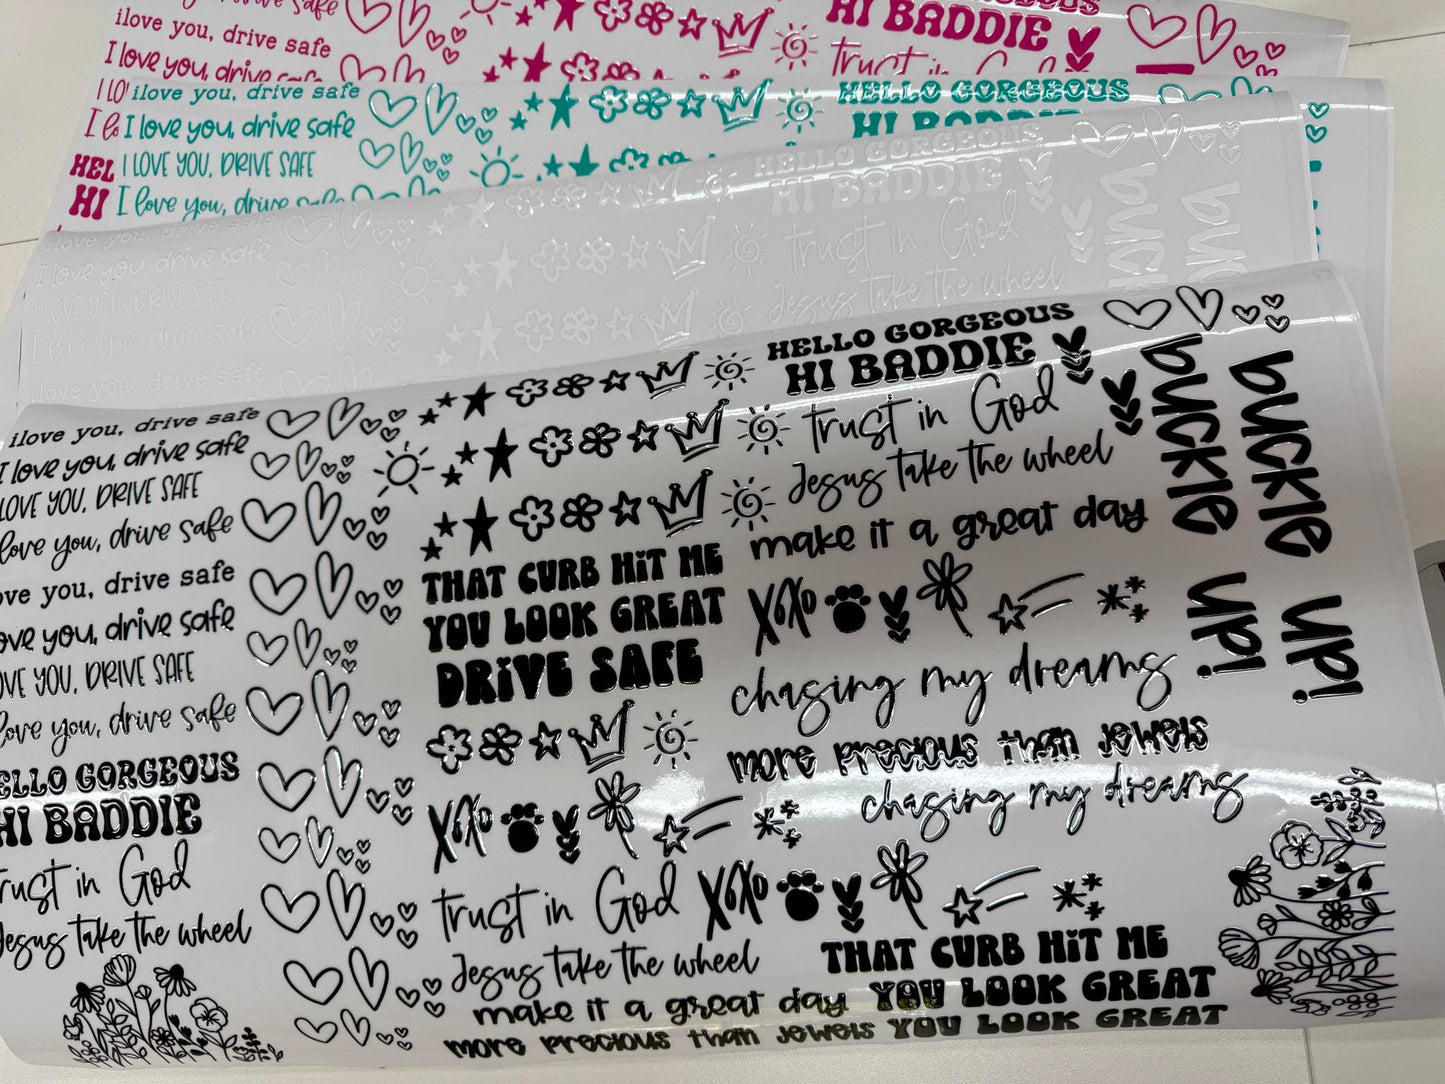 ilove you, drive safe
I love you, drive safe
HI BADDIE
trust in
HEL
HI
ilove you, drive safe
I love you, drive safe
I LOVE YOU, DRIVE SAFE
I love you, drive safe
HELLO GORGEOUS
HI BADDIE
ilove you, drive safe
I love you, drive safe
I LOVE YOU, DRIVE SAFE
I love you, drive safe
ilove you, drive safe
HELLO GORGEOUS
HI BADDIE
trust in God
Jesus take the wheel
ilove you, drive safe
I love you, drive safe
LOVE YOU, DRIVE SAFE
love you, drive safe
ove you, drive safe
ove you, drive safe
OVE YOU, DRIVE SAFE
love you, drive safe
ELLO GORGEOUS
HI BADDIE
rust in God
Jesus take the wheel
THAT CURB HiT ME
YOU LOOK GREAT
DRiVE SAFE
XOXO
trust in God
Jesus take the wheel
make it a great day
more precious than jewels
HELLO GORGEOUS
HI BADDIE
trust in God
Jesus take the wheel
make it a great day
XOXO
chasing my dreams
more precious than jewels
chasing my dreams
XOXO
THAT CURB HiT ME
YOU LOOK GREAT
YOU LOOK GREAT
buckle up!
buckle up!